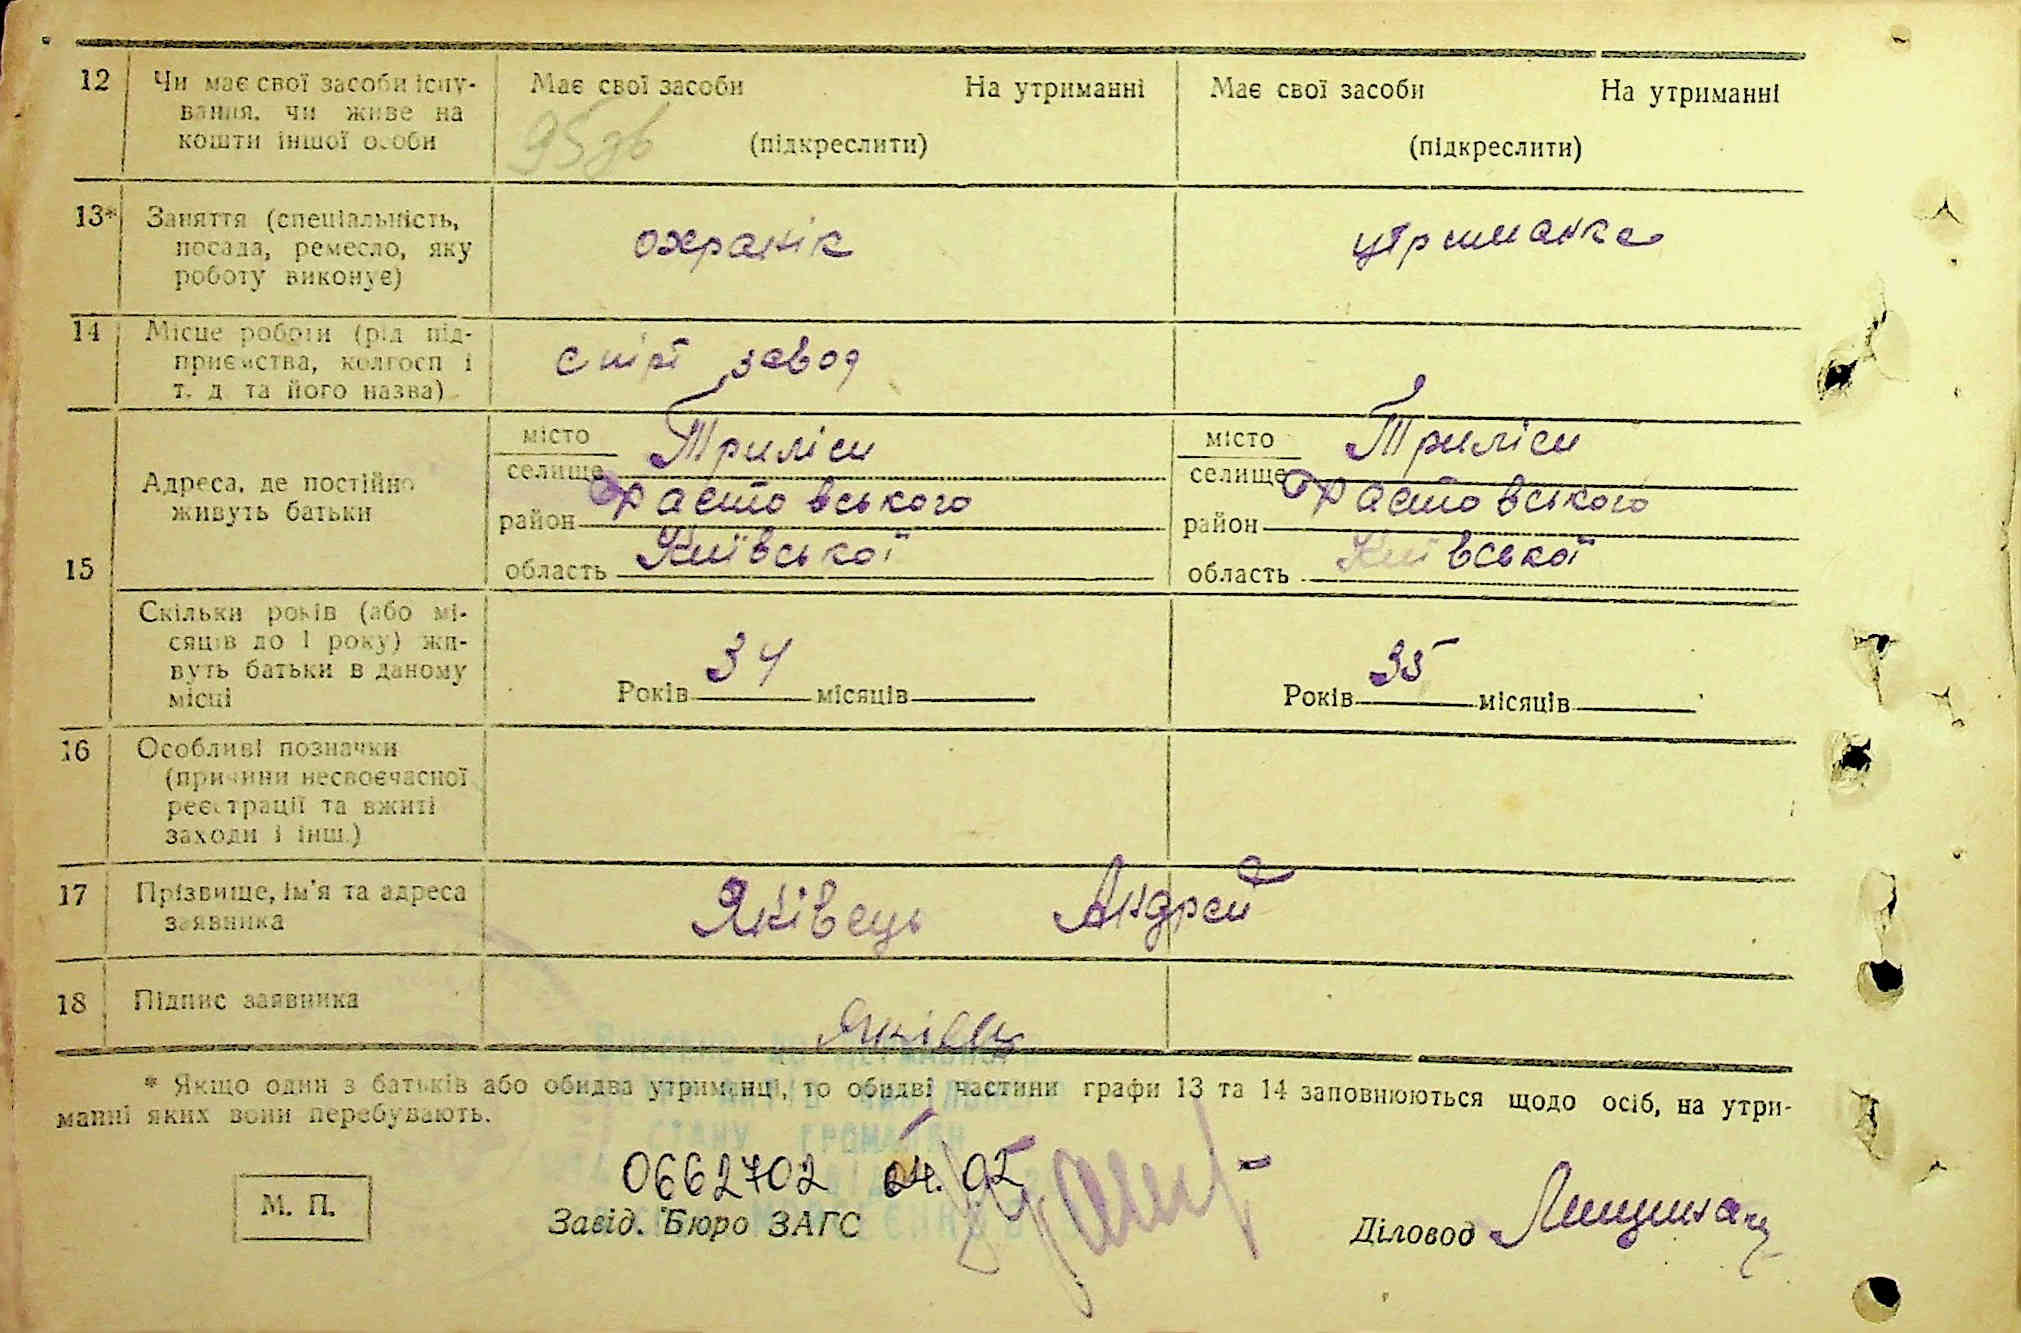 12 Чи має свої засоби існу- Має свої засоби На утриманні Має свої засоби На утриманні
вання, чи живе на
кошти іншої особи (підкреслити) (підкреслити)
13* Заняття (спеціальність,
посада, ремесло, яку охранік утриманка
роботу виконує)
14 Місце роботи (рід під-
приємства, колгосп і спірт завод
т. д та його назва)
місто Триліси місто Триліси
Адреса, де постійно селище селище
живуть батьки район Фастовського район Фастовського
15 область Київської область Київської
Скільки років (або мі-
сяців до 1 року) жи-
вуть батьки в даному
місці Років 34 місяців Років 35 місяців
16 Особливі позначки
(причини несвоєчасної
реєстрації та вжиті
заходи і інш.)
17 Прізвище, ім'я та адреса Яківець Андрей
заявника
18 Підпис заявника
* Якщо один з батьків або обидва утриманці, то обидві частини графи 13 та 14 заповнюються щодо осіб, на утри-
манні яких вони перебувають.
СТАНУ ГРОМАДЯН
0662702
М. П. Завід. Бюро ЗАГС Діловод